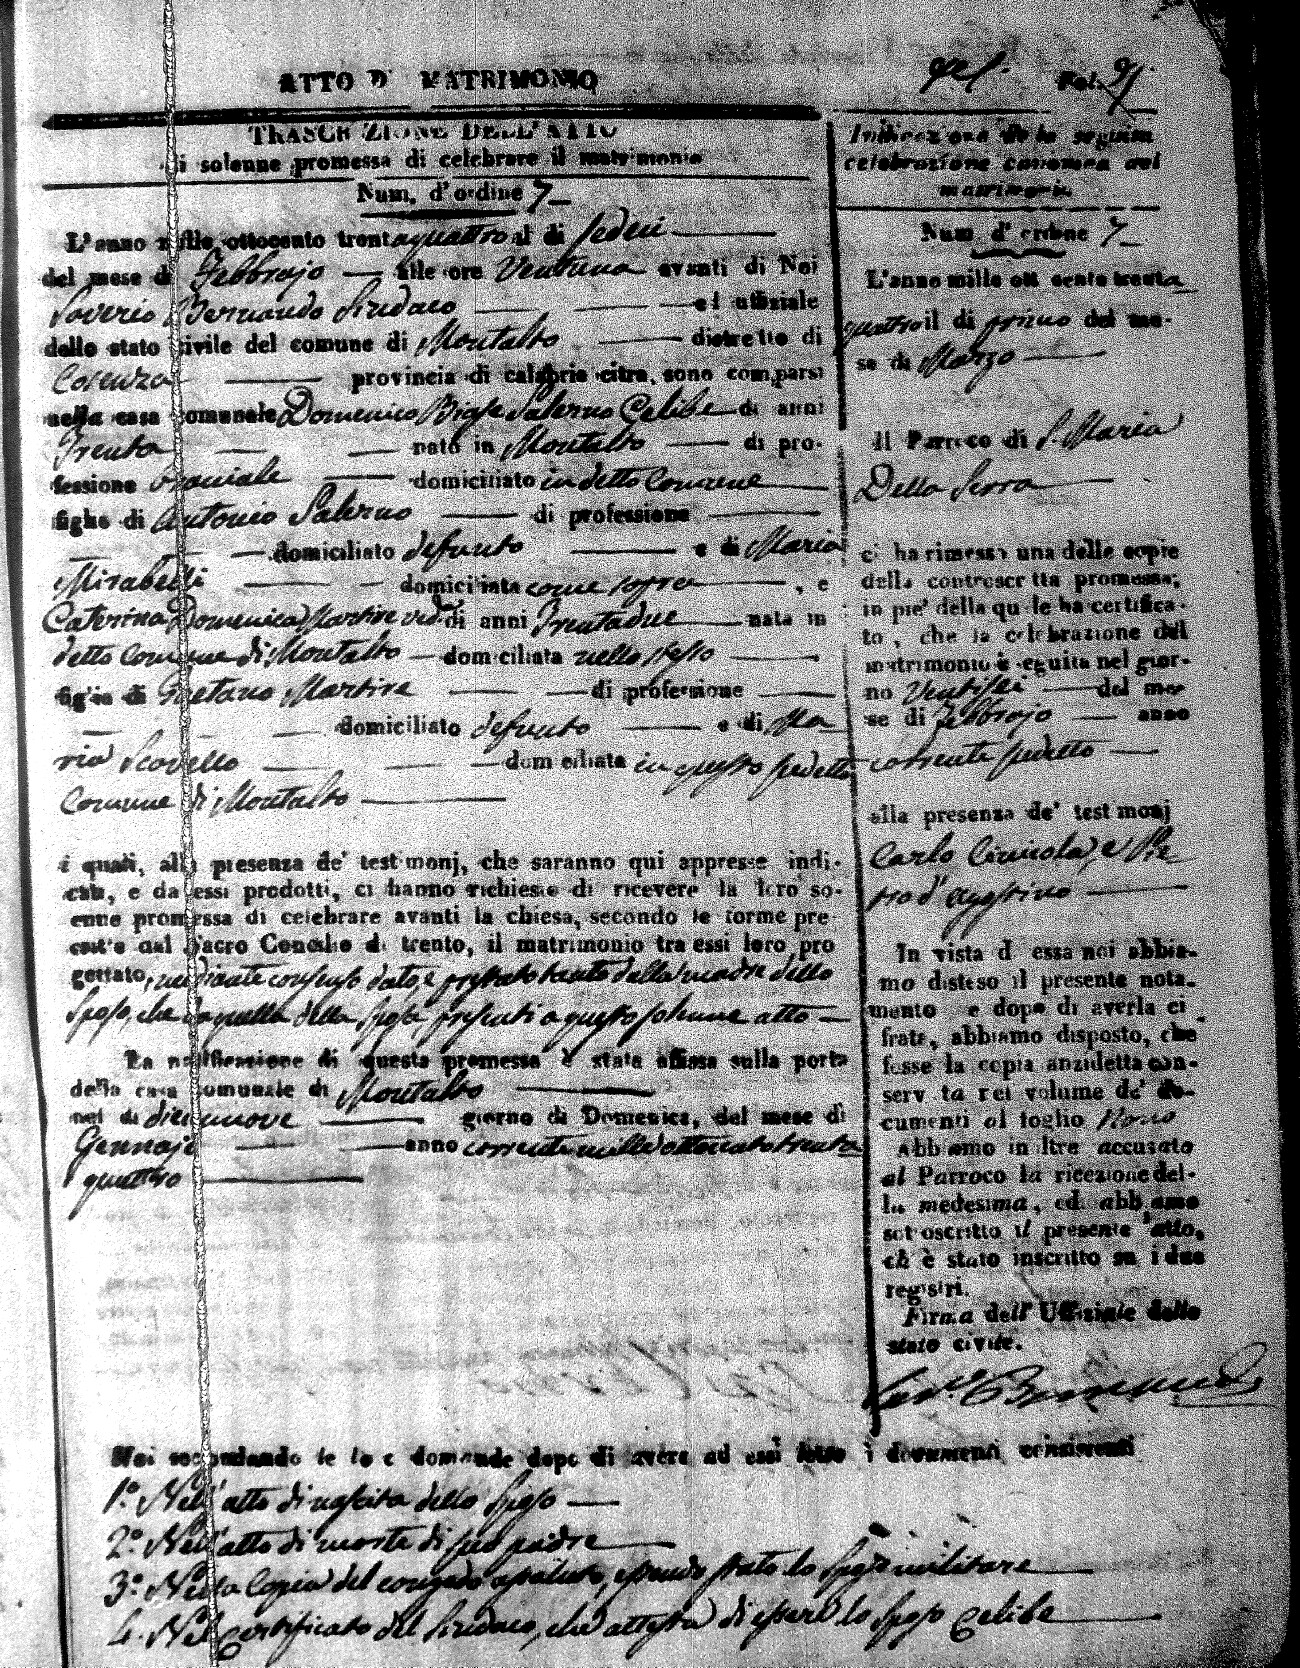 ATTO D' MATRIMONIO
TRASCRIZIONE DELL'ATTO
di solenne promessa di celebrare il matrimonio
Num. d'ordine 7
L'anno mille ottocento trentaquattro il di sedeci
del mese di Febbrajo alle ore Ventuna avanti di Noi
Saverio Bernaudo Sindaco ed uffiziale
dello stato civile del comune di Montalto distretto di
Cosenza provincia di calabria citra, sono comparsi
nella casa comunale Domenico Biase Salerno Celibe di anni
Trenta nato in Montalto di pro-
fessione domiciliato in detto Comune
figlio di Antonio Salerno di professione
domiciliato defunto e di Maria
Mirabelli domiciliata come sopra, e
Caterina Domenica Martire ved. di anni Trentadue nata in
detto Comune di Montalto domiciliata nello stesso
figlia di Gaetano Martire di professione
domiciliato defunto e di Ma
ria Scovello domiciliata in questo sudetto
Comune di Montalto
i quali, alla presenza de' testimonj, che saranno qui appresse indi-
cati, e da essi prodotti, ci hanno richiesto di ricevere la loro so-
enne promessa di celebrare avanti la chiesa, secondo le forme pre-
critte dal Sacro Concilio di trento, il matrimonio tra essi loro pro
gettato, mediante consenso dato, e prestato tanto dalla madre dello
Sposo, che da quella della Sposa, presenti a questo solenne atto
La notificazione di questa promessa è stata affissa sulla porta
della casa comunale di Montalto
nel di diecinnove giorno di Domenica, del mese di
Gennajo anno corrente mille ottocento trenta
quattro
Fol. 9
Indicazione de la seguita
celebrazione canonica del
matrimonio.
Num. d'ordine 7
L'anno mille ott cento trenta
quattro il di primo del me-
se di Marzo
Il Parroco di S. Maria
Della Serra
ci ha rimesso una delle copie
della controscritta promessa;
in pie' della quale ha certifica-
to, che la celebrazione del
matrimonio è seguita nel gior-
no Ventisei del me-
se di Febbrajo anno
corrente sudetto
alla presenza de' testimonj
Carlo e Pie
tro d'Agostino
In vista d essa noi abbia-
mo disteso il presente nota-
mento e dopo di averla ci
frata, abbiamo disposto, che
fosse la copia anzidetta con-
servata nel volume de' do-
cumenti al foglio Nono
Abbiamo inoltre accusato
al Parroco la ricezione del-
la medesima, ed abbiamo
sottoscritto il presente atto,
ch è stato inscritto su i due
registri.
Firma dell' Uffiziale dello
stato civile.
Noi secondando le loro domande dopo di avere ad essi letto i documenti consistenti
1.° Nell'atto di nascita dello Sposo
2.° Nell'atto di morte di suo padre
3.° Nella Copia del congedo assoluto, essendo stato lo Sposo militare
4. Nel Certificato del Sindaco, che attesta di essere lo Sposo Celibe